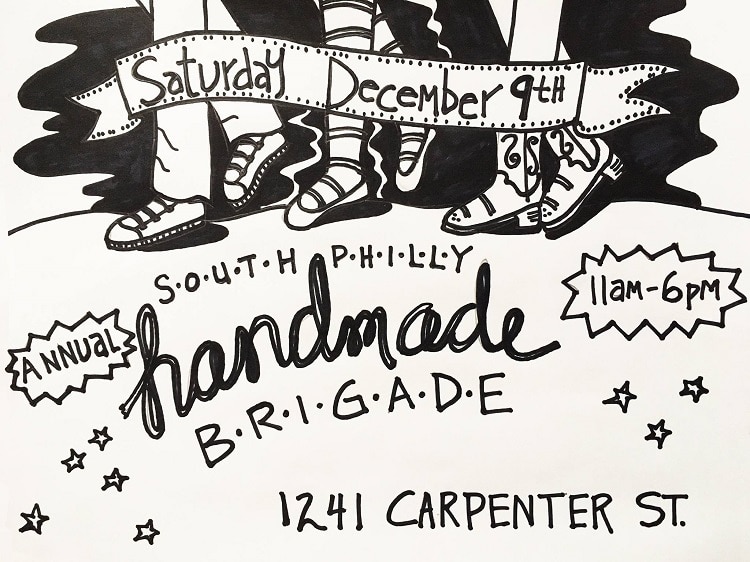 Saturday December 9TH
S·O·U·T·H P·H·I·L·L·Y
11am-6pm
ANNUAL
handmade
B·R·I·G·A·D·E
1241 CARPENTER ST.